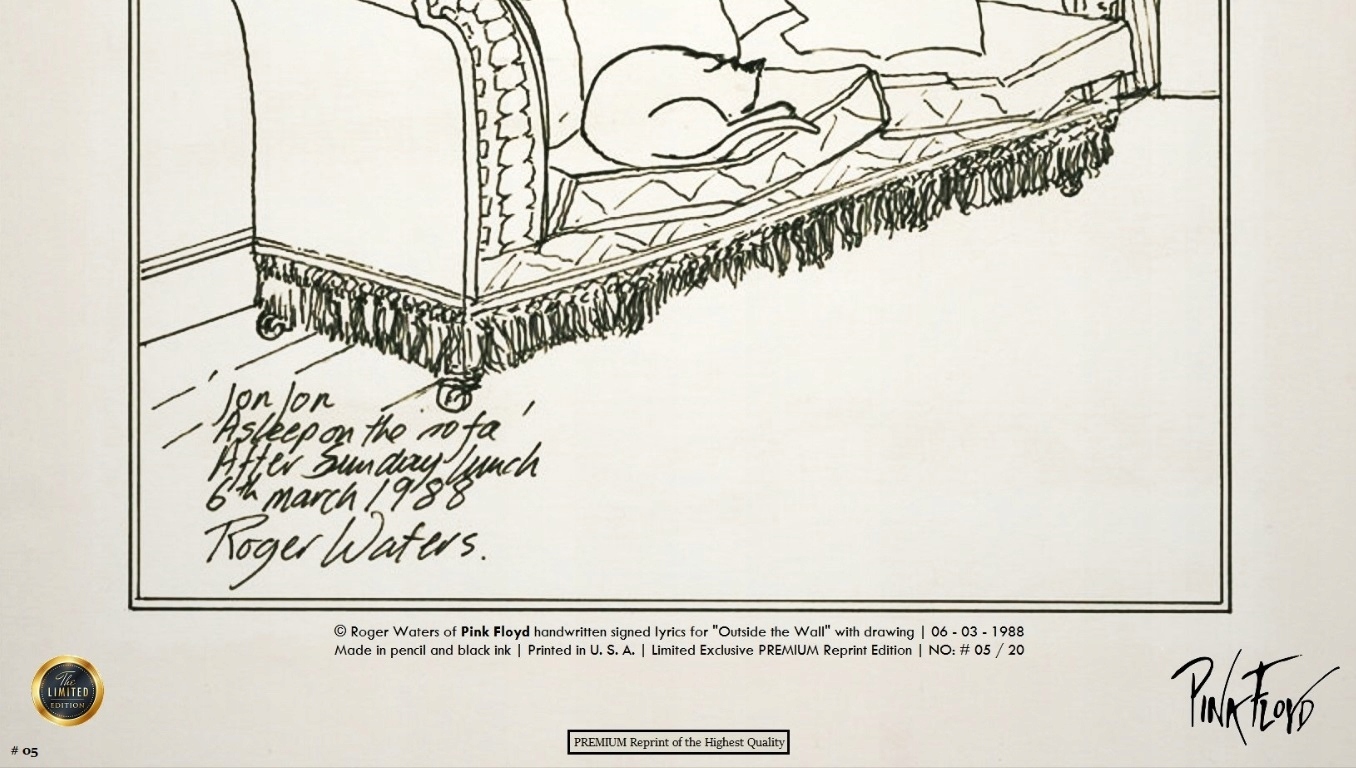 'Jon Jon
Asleep on the sofa'
After Sunday lunch
6th march 1988
Roger Waters.
© Roger Waters of Pink Floyd handwritten signed lyrics for "Outside the Wall" with drawing | 06 - 03 - 1988
Made in pencil and black ink | Printed in U. S. A. | Limited Exclusive PREMIUM Reprint Edition | NO: # 05 / 20
The
LIMITED
EDITION
PINK FLOYD
PREMIUM Reprint of the Highest Quality
# 05